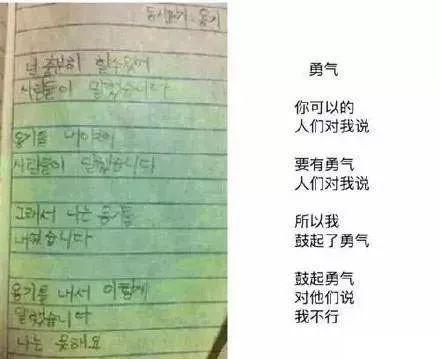 동시짓기 - 용기
넌 충분히 할 수 있어
사람들이 말했습니다
용기를 내야해
사람들이 말했습니다
그래서 나는 용기를
내었습니다
용기를 내서 이렇게
말했습니다
나는 못해요
勇气
你可以的
人们对我说
要有勇气
人们对我说
所以我
鼓起了勇气
鼓起勇气
对他们说
我不行